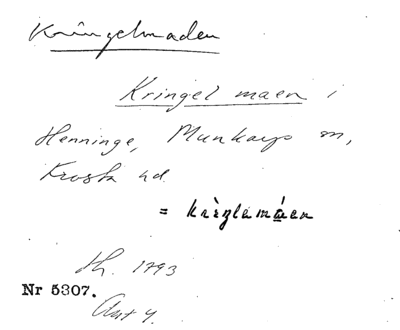 Kringelmaden
Kringel maen i
Henninge, Munkarps sn,
Frosta hd.
= krìŋləmáen
Sk. 1793
Nr 5307.
Ant 4.